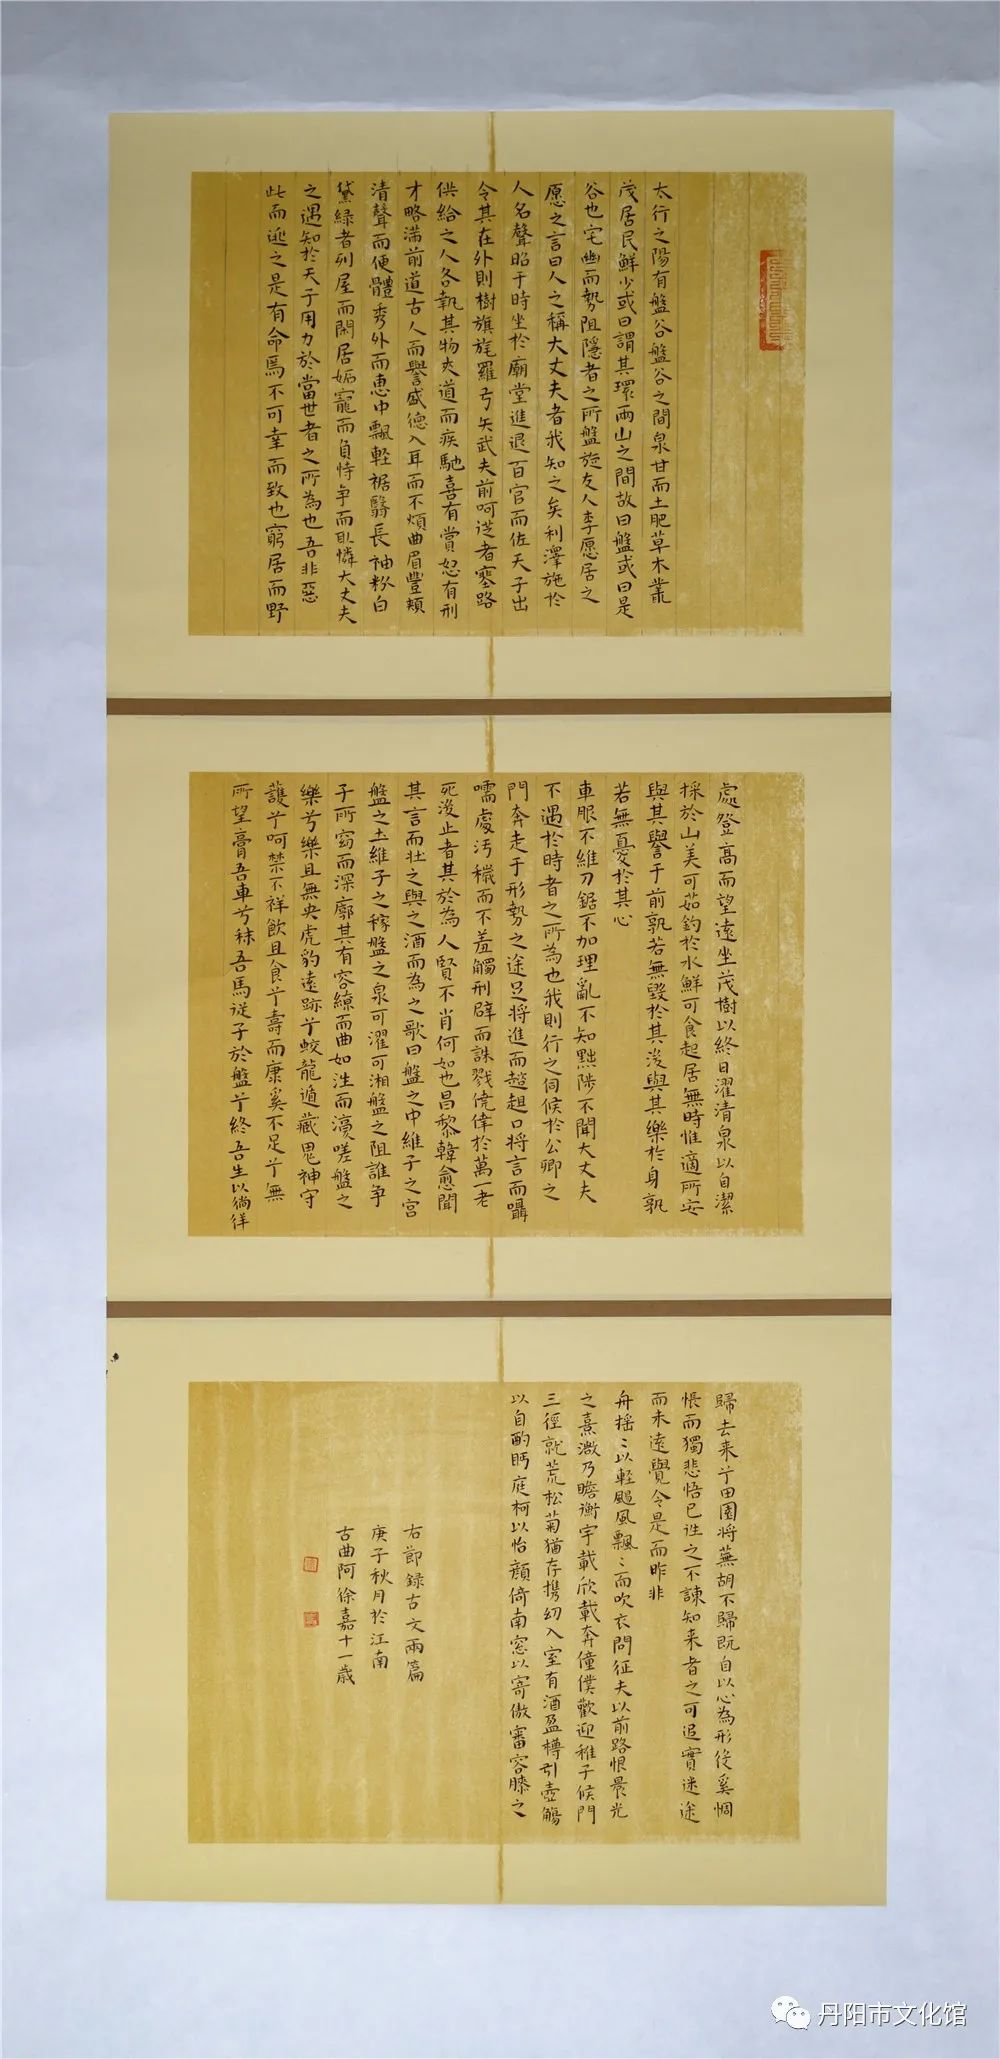 太行之陽有盤谷盤谷之間泉甘而土肥草木叢
茂居民鮮少或曰謂其環兩山之間故曰盤或曰是
谷也宅幽而勢阻隱者之所盤旋友人李愿居之
愿之言曰人之稱大丈夫者我知之矣利澤施於
人名聲昭于時坐於廟堂進退百官而佐天子出
令其在外則樹旗旄羅弓矢武夫前呵從者塞路
供給之人各執其物夾道而疾馳喜有賞怒有刑
才畧滿前道古人而譽盛德入耳而不煩曲眉豐頰
清聲而便體秀外而惠中飄輕裾翳長袖粉白
黛綠者列屋而閑居妬寵而負恃爭而取憐大丈夫
之遇知於天子用力於當世者之所為也吾非惡
此而逃之是有命焉不可幸而致也窮居而野
處登高而望遠坐茂樹以終日濯清泉以自潔
採於山美可茹釣於水鮮可食起居無時惟適所安
與其譽于前孰若無毀於其後與其樂於身孰
若無憂於其心
車服不維刀鋸不加理亂不知黜陟不聞大丈夫
不遇於時者之所為也我則行之伺候於公卿之
門奔走于形勢之途足將進而趑趄口將言而囁
嚅處汚穢而不羞觸刑辟而誅戮僥倖於萬一老
死後止者其於為人賢不肖何如也昌黎韓愈聞
其言而壯之與之酒而為之歌曰盤之中維子之宮
盤之土維子之稼盤之泉可濯可湘盤之阻誰爭
子所窈而深廓其有容繚而曲如往而復嗟盤之
樂兮樂且無央虎豹遠跡兮蛟龍遁藏鬼神守
護兮呵禁不祥飲且食兮壽而康奚不足兮無
所望膏吾車兮秣吾馬從子於盤兮終吾生以徜徉
歸去来兮田園將蕪胡不歸既自以心為形役奚惆
悵而獨悲悟已往之不諫知来者之可追實迷途
而未遠覺今是而昨非
舟搖〻以輕颺風飄〻而吹衣問征夫以前路恨晨光
之熹微乃瞻衡宇載欣載奔僮僕歡迎稚子候門
三徑就荒松菊猶存携幼入室有酒盈樽引壺觴
以自酌眄庭柯以怡顔倚南窓以寄傲審容膝之
右節録古文兩篇
庚子秋月於江南
古曲阿徐嘉十一歳
丹阳市文化馆